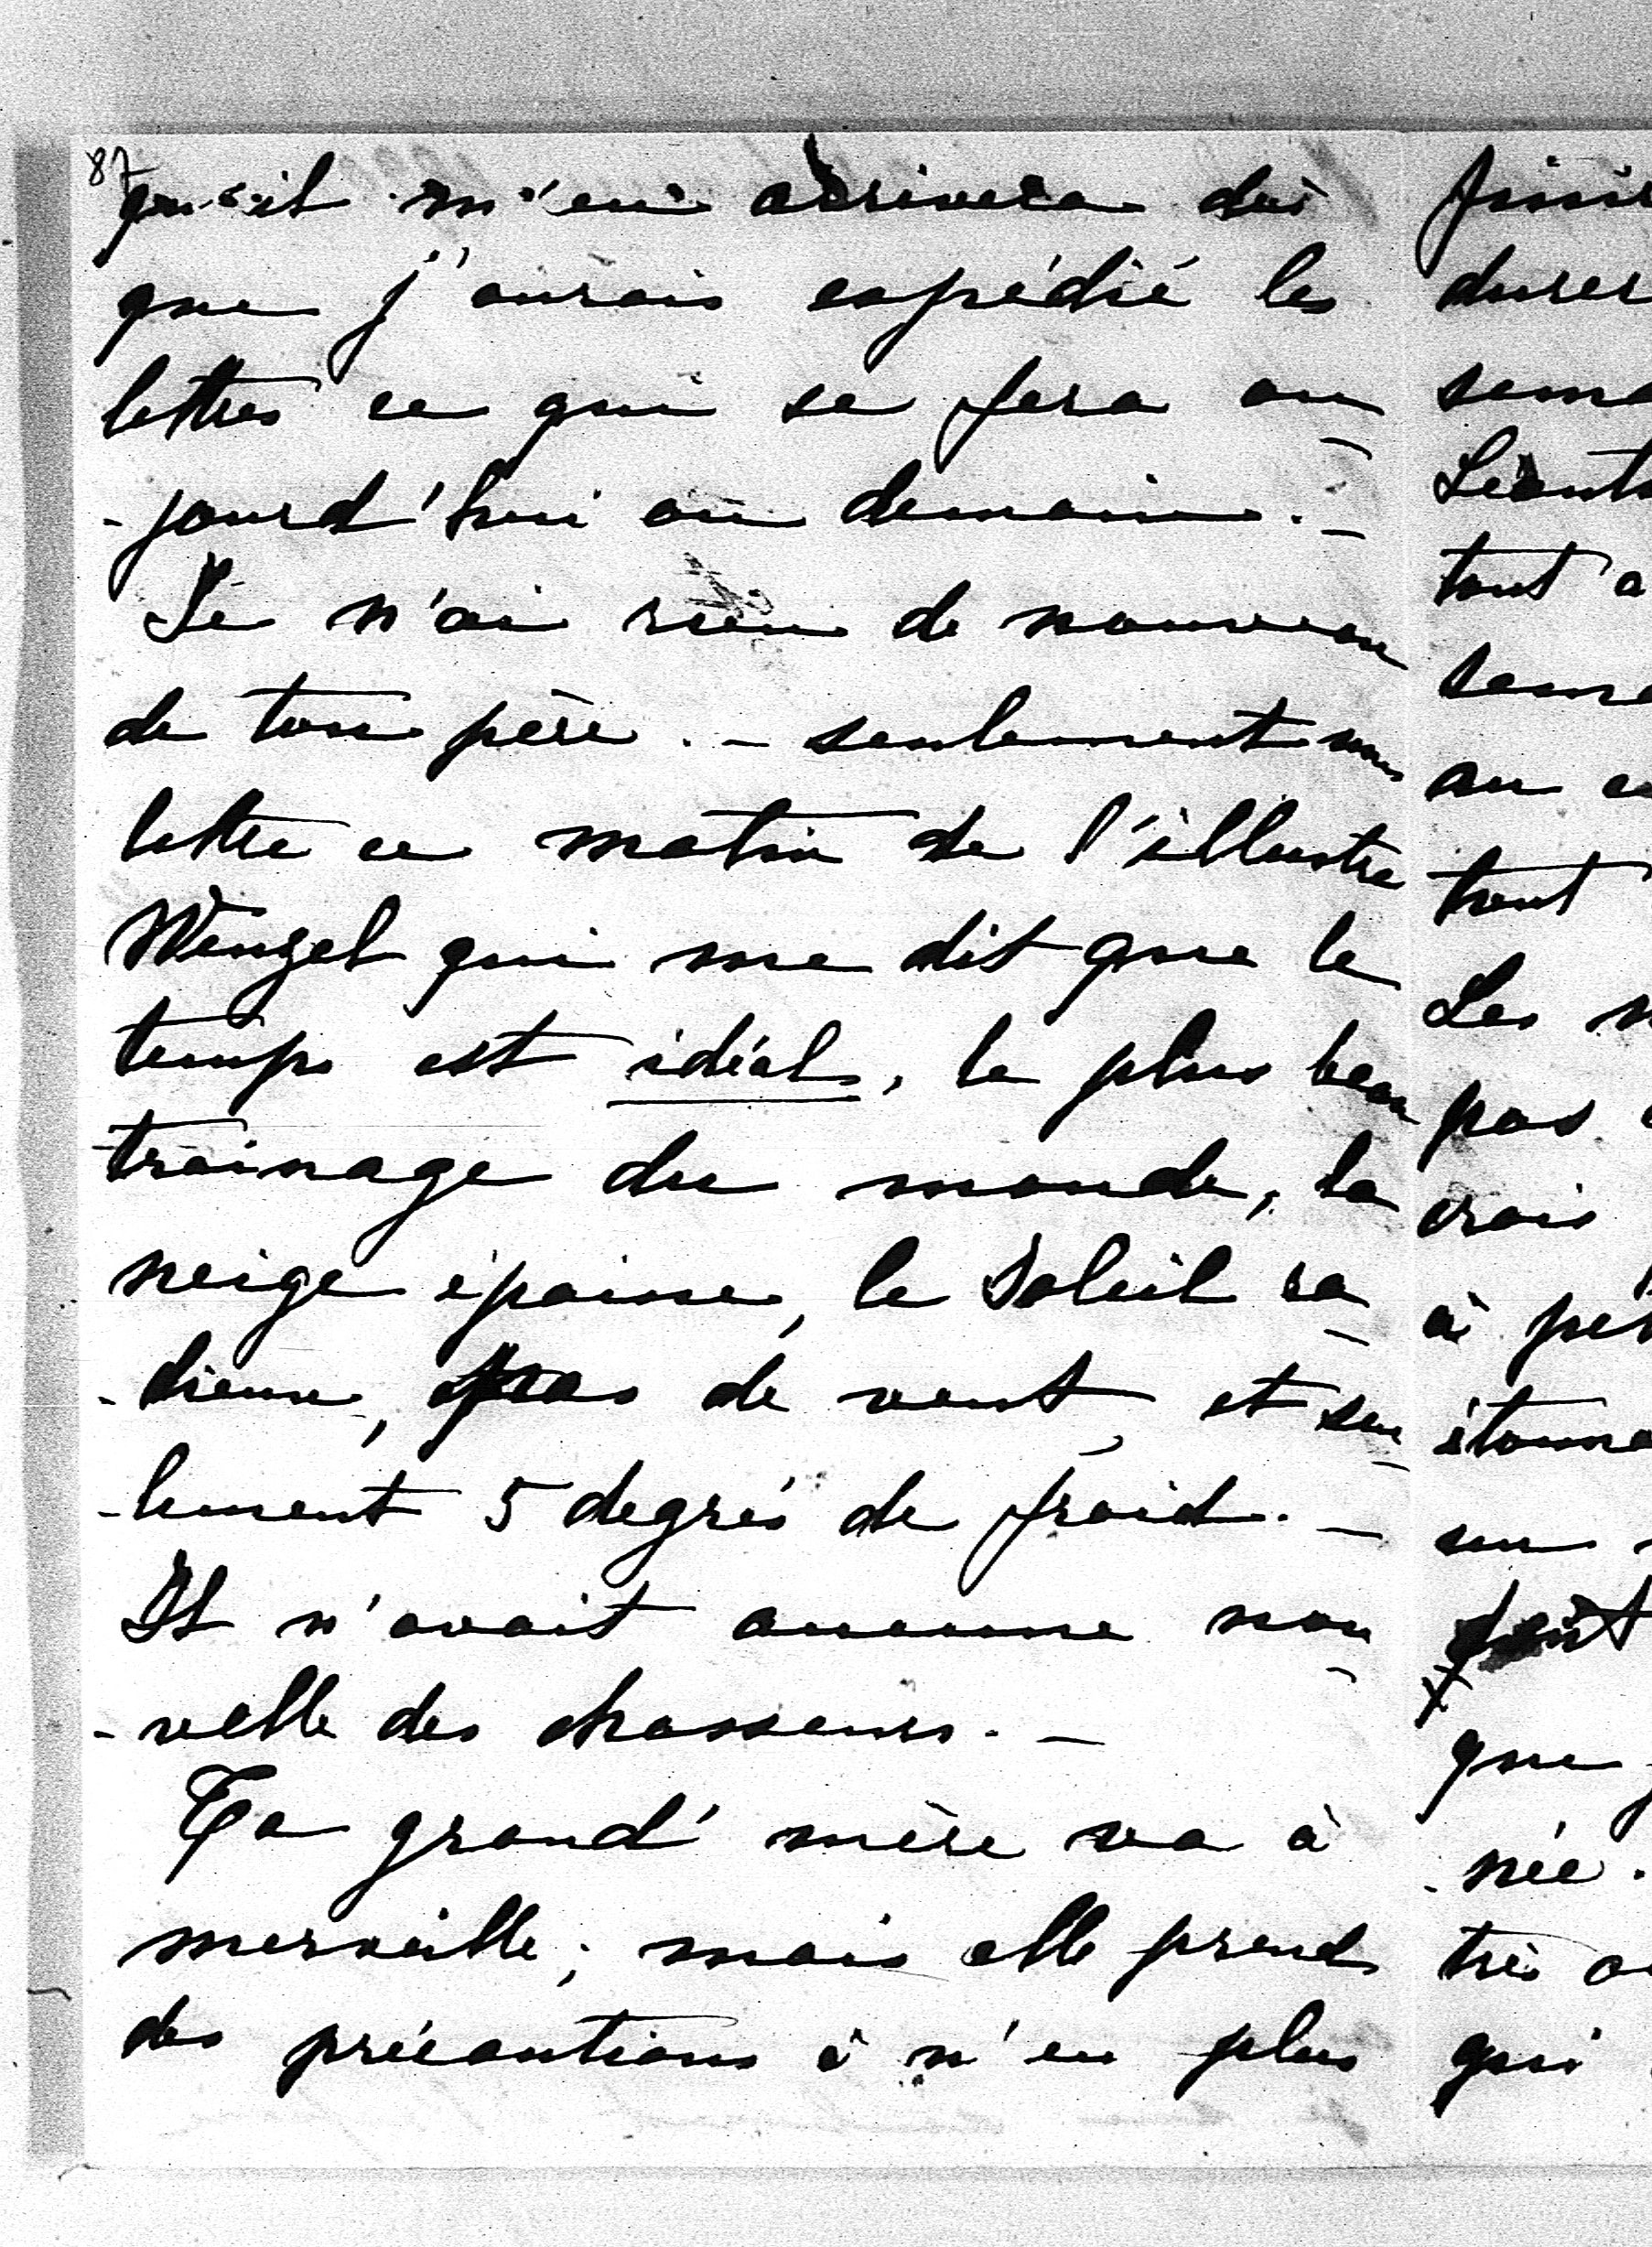 87
qu'il m'en arrivera dès
que j'aurais expédié les
lettres ce qui se fera au
-jourd'hui ou demain. _
Je n'ai rien de nouveau
de ton père. _ seulement une
lettre ce matin de l'illustre
Wenzel qui me dit que le
temps est idéal, le plus beau
trainage du monde, la
neige épaisse, le soleil ra
-dieux, pas de vent, et seu
-lement 5 degrés de froid. _
Il n'avait aucune nou
-velle des chasseurs. _
Ta grand'mère va à
merveille; mais elle prend
des précautions à n'en plus
finir
durer
sema
tout a
au
tout
Les
pas
crois
à
étonné
un
que
-née.
très
qui